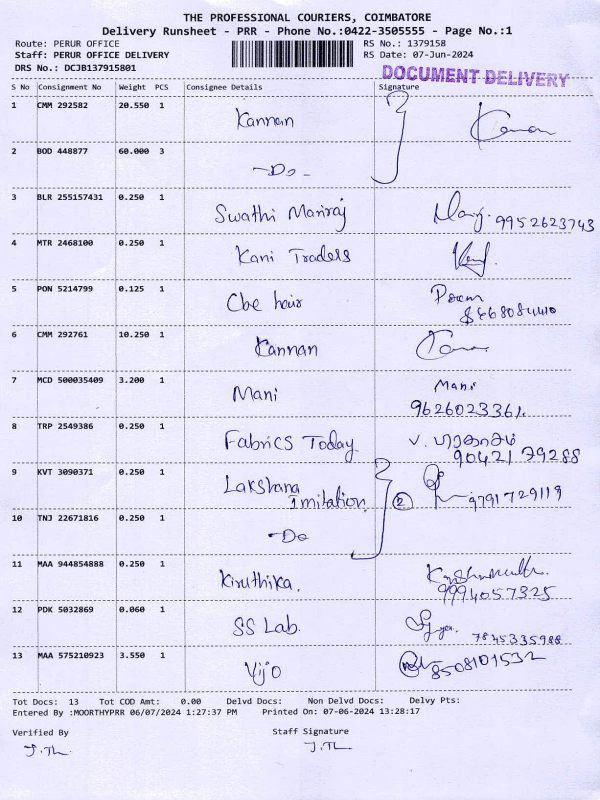 THE PROFESSIONAL COURIERS, COIMBATORE
Delivery Runsheet - PRR - Phone No.:0422-3505555 - Page No.:1
Route: PERUR OFFICE RS No.: 1379158
Staff: PERUR OFFICE DELIVERY RS Date: 07-Jun-2024
DRS No.: DCJB137915801 DOCUMENT DELIVERY
S No Consignment No Weight PCS Consignee Details Signature
1 CMM 292582 20.550 1 Kannan
2 BOD 448877 60.000 3 -Do-
3 BLR 255157431 0.250 1 Swathi Maniraj 9952623743
4 MTR 2468100 0.250 1 Kani Traders
5 PON 5214799 0.125 1 Cbe hair
6 CMM 292761 10.250 1 Kannan
7 MCD 500035409 3.200 1 Mani Mani
9626023361.
8 TRP 2549386 0.250 1 Fabrics Today
90421 79288
9 KVT 3090371 0.250 1 Lakshana Imitation 2 9791729119
10 TNJ 22671816 0.250 1 -Do
11 MAA 944854888 0.250 1 Kiruthika.
9994057325
12 PDK 5032869 0.060 1 SS Lab. 7845335988
13 MAA 575210923 3.550 1 Vijo 8508101532
Tot Docs: 13 Tot COD Amt: 0.00 Delvd Docs: Non Delvd Docs: Delvy Pts:
Entered By :MOORTHYPRR 06/07/2024 1:27:37 PM Printed On: 07-06-2024 13:28:17
Verified By Staff Signature
J.Th. J.Th.